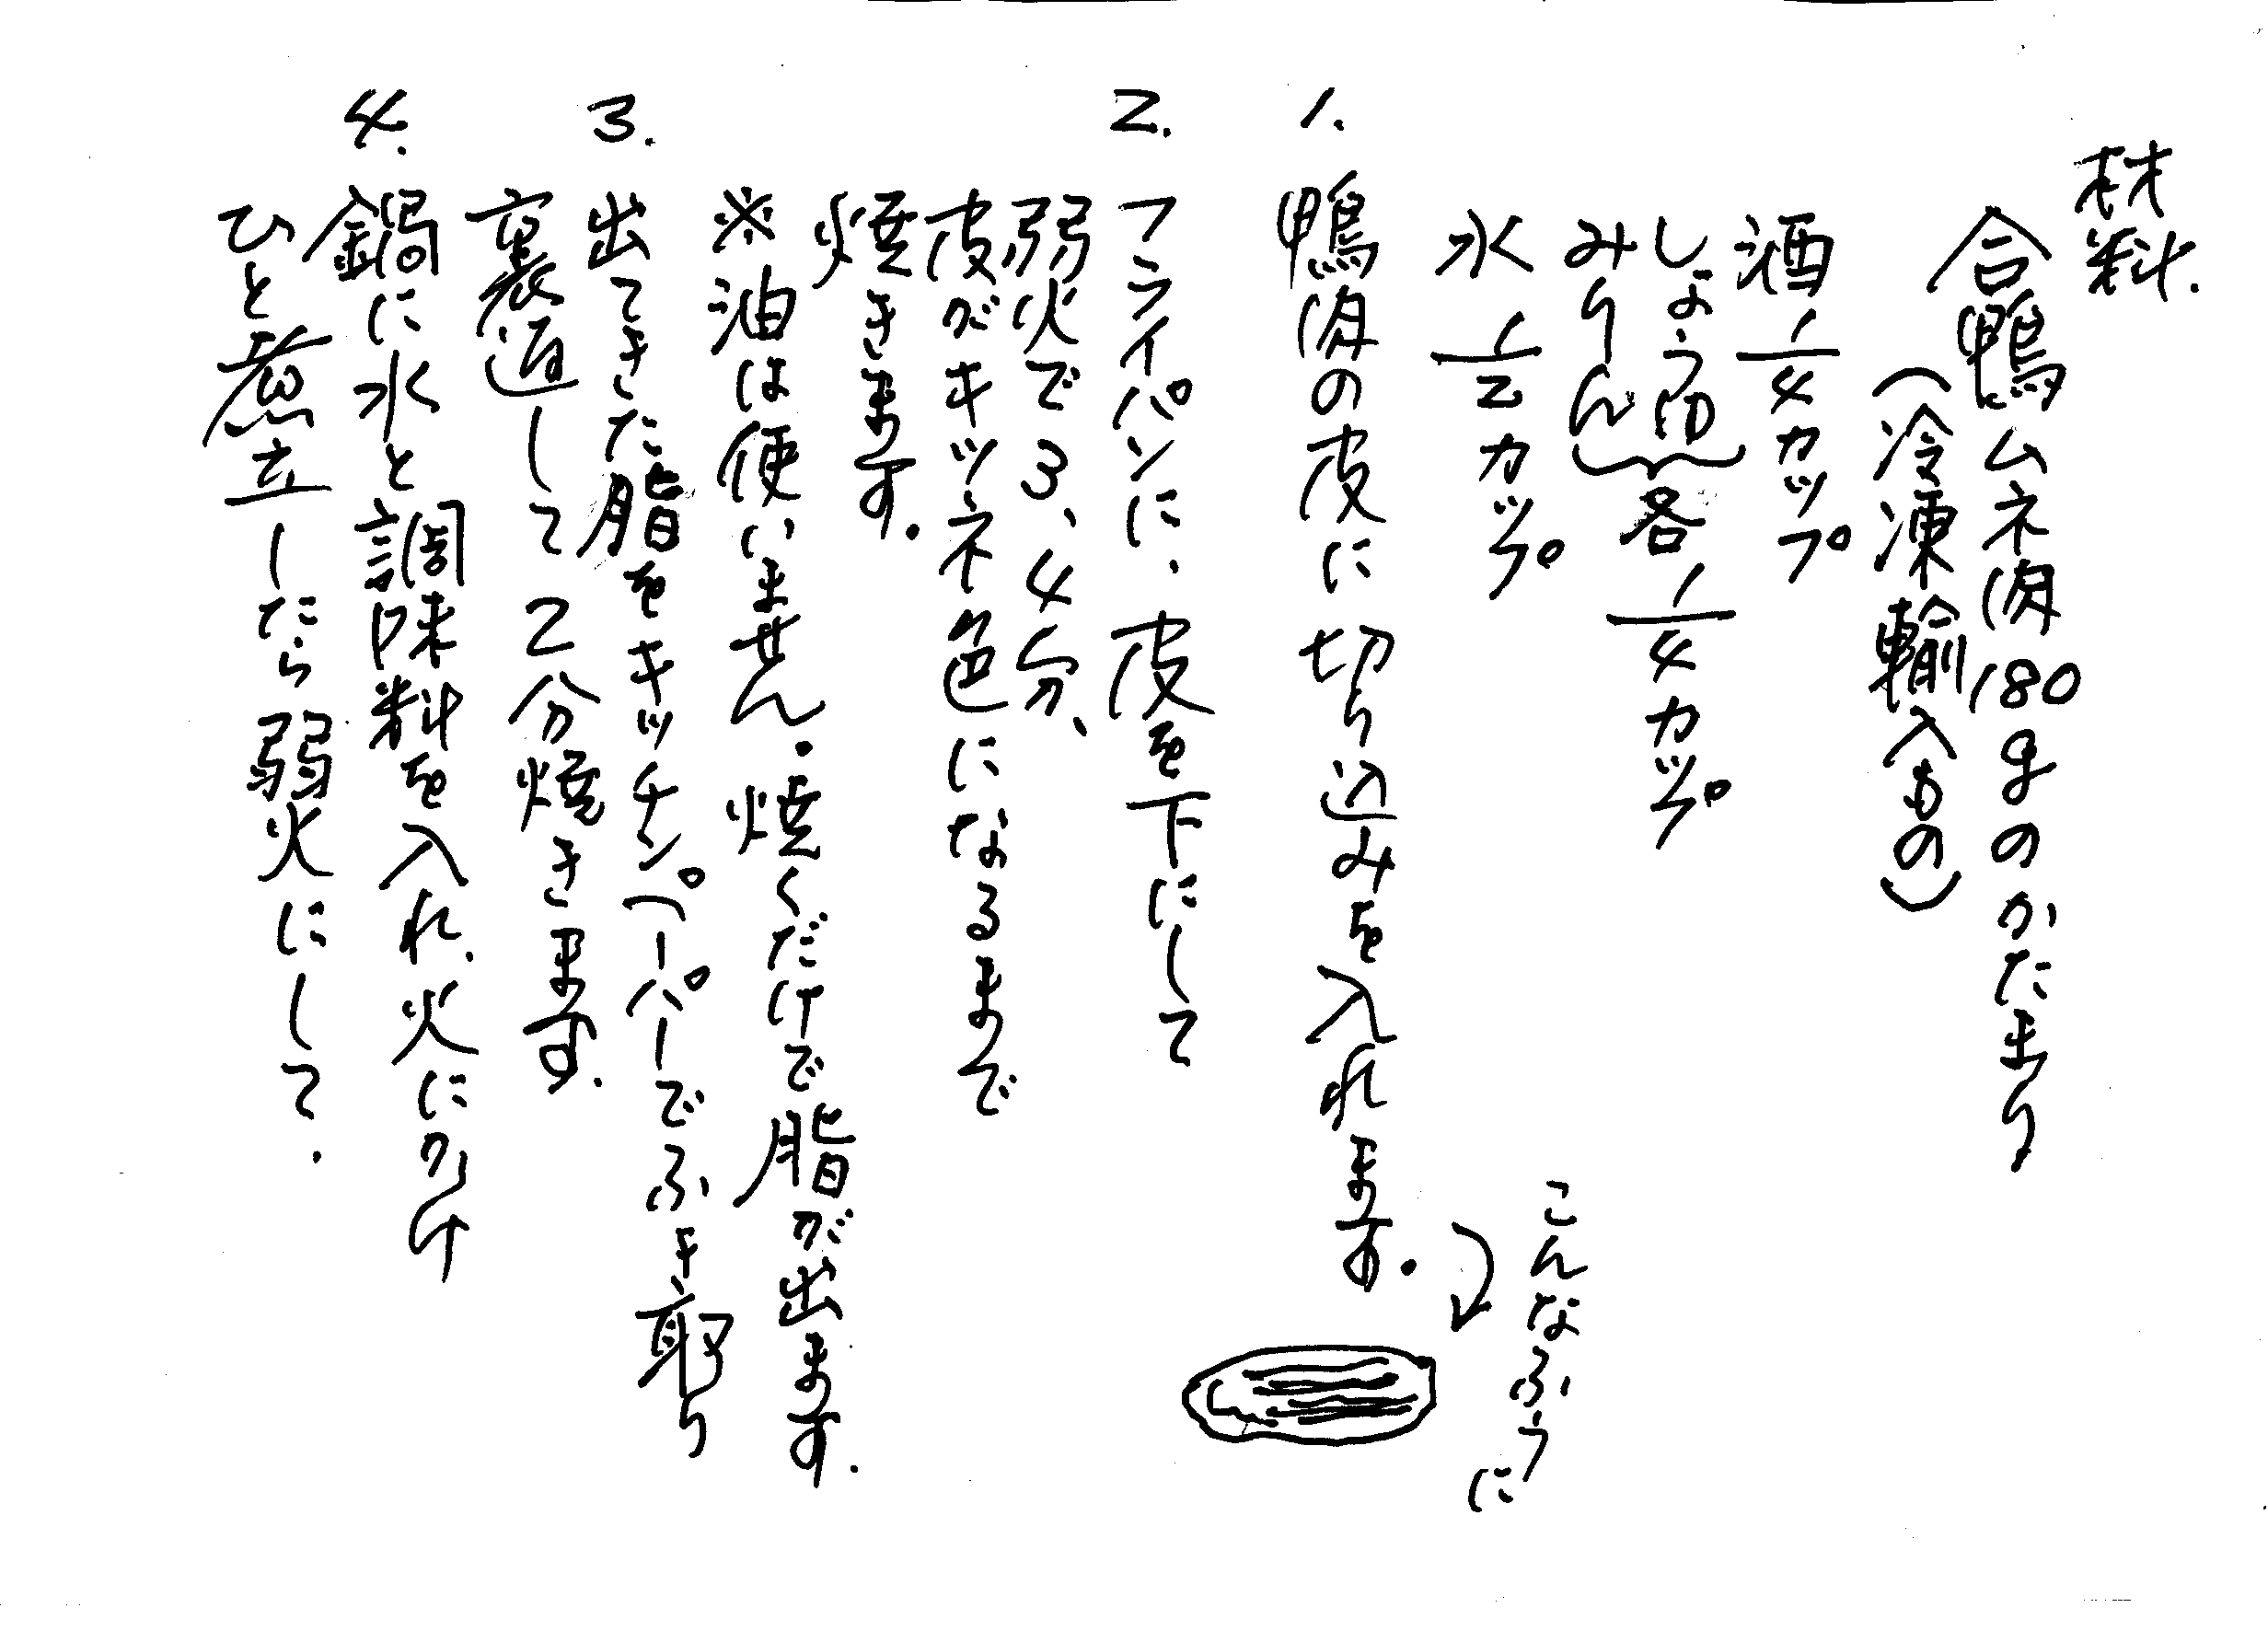 材料.
合鴨ムネ肉180gのかたまり
(冷凍輸入もの)
酒 1/4カップ
しょう油
みりん
各1/4カップ
水 1/2カップ
こんなふうに
1. 鴨肉の皮に切り込みを入れます.
2. フライパンに、皮を下にして
弱火で3、4分、
皮がキツネ色になるまで
焼きます.
※油は使いません.焼くだけで脂が出ます.
3. 出てきた脂をキッチンペーパーでふき取り
裏返して2分焼きます.
4. 鍋に水と調味料を入れ、火にかけ
ひと煮立したら弱火にして.